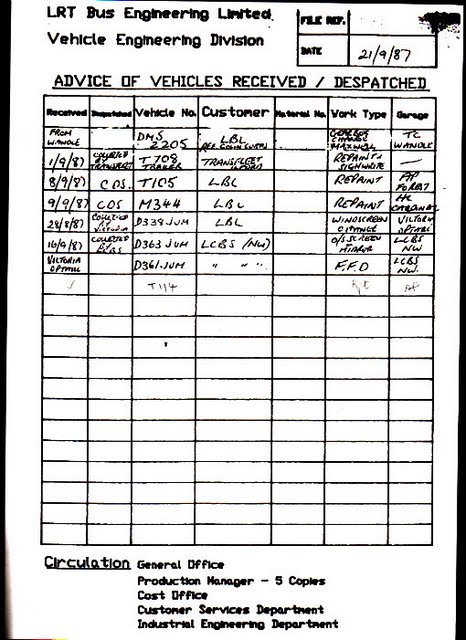 LRT Bus Engineering Limited
Vehicle Engineering Division
FILE REF.
DATE 21/9/87
ADVICE OF VEHICLES RECEIVED / DESPATCHED
Received Despatched Vehicle No. Customer Material No. Work Type Garage
FROM WANDLE DMS 2205 LBL GEARBOX CHANGE MAXWELL TC WANDLE
1/9/87 COLLECTED BY T708 TRANSFLEET REPAINT + SIGNWRITE —
8/9/87 CDS. T105 LBL REPAINT AP FOREST
9/9/87 CDS M344 LBL REPAINT
28/8/87 COLLECTED BY VICTORIA D338 JUM LBL WINDSCREEN CHANGE VICTORIA
16/9/87 COLLECTED BY D363 JUM LCBS (NW) O/S SCREEN MIRROR LCBS NW
VICTORIA D361 JUM " " " F.F.D LCBS NW.
T114 AP
Circulation General Office
Production Manager - 5 Copies
Cost Office
Customer Services Department
Industrial Engineering Department